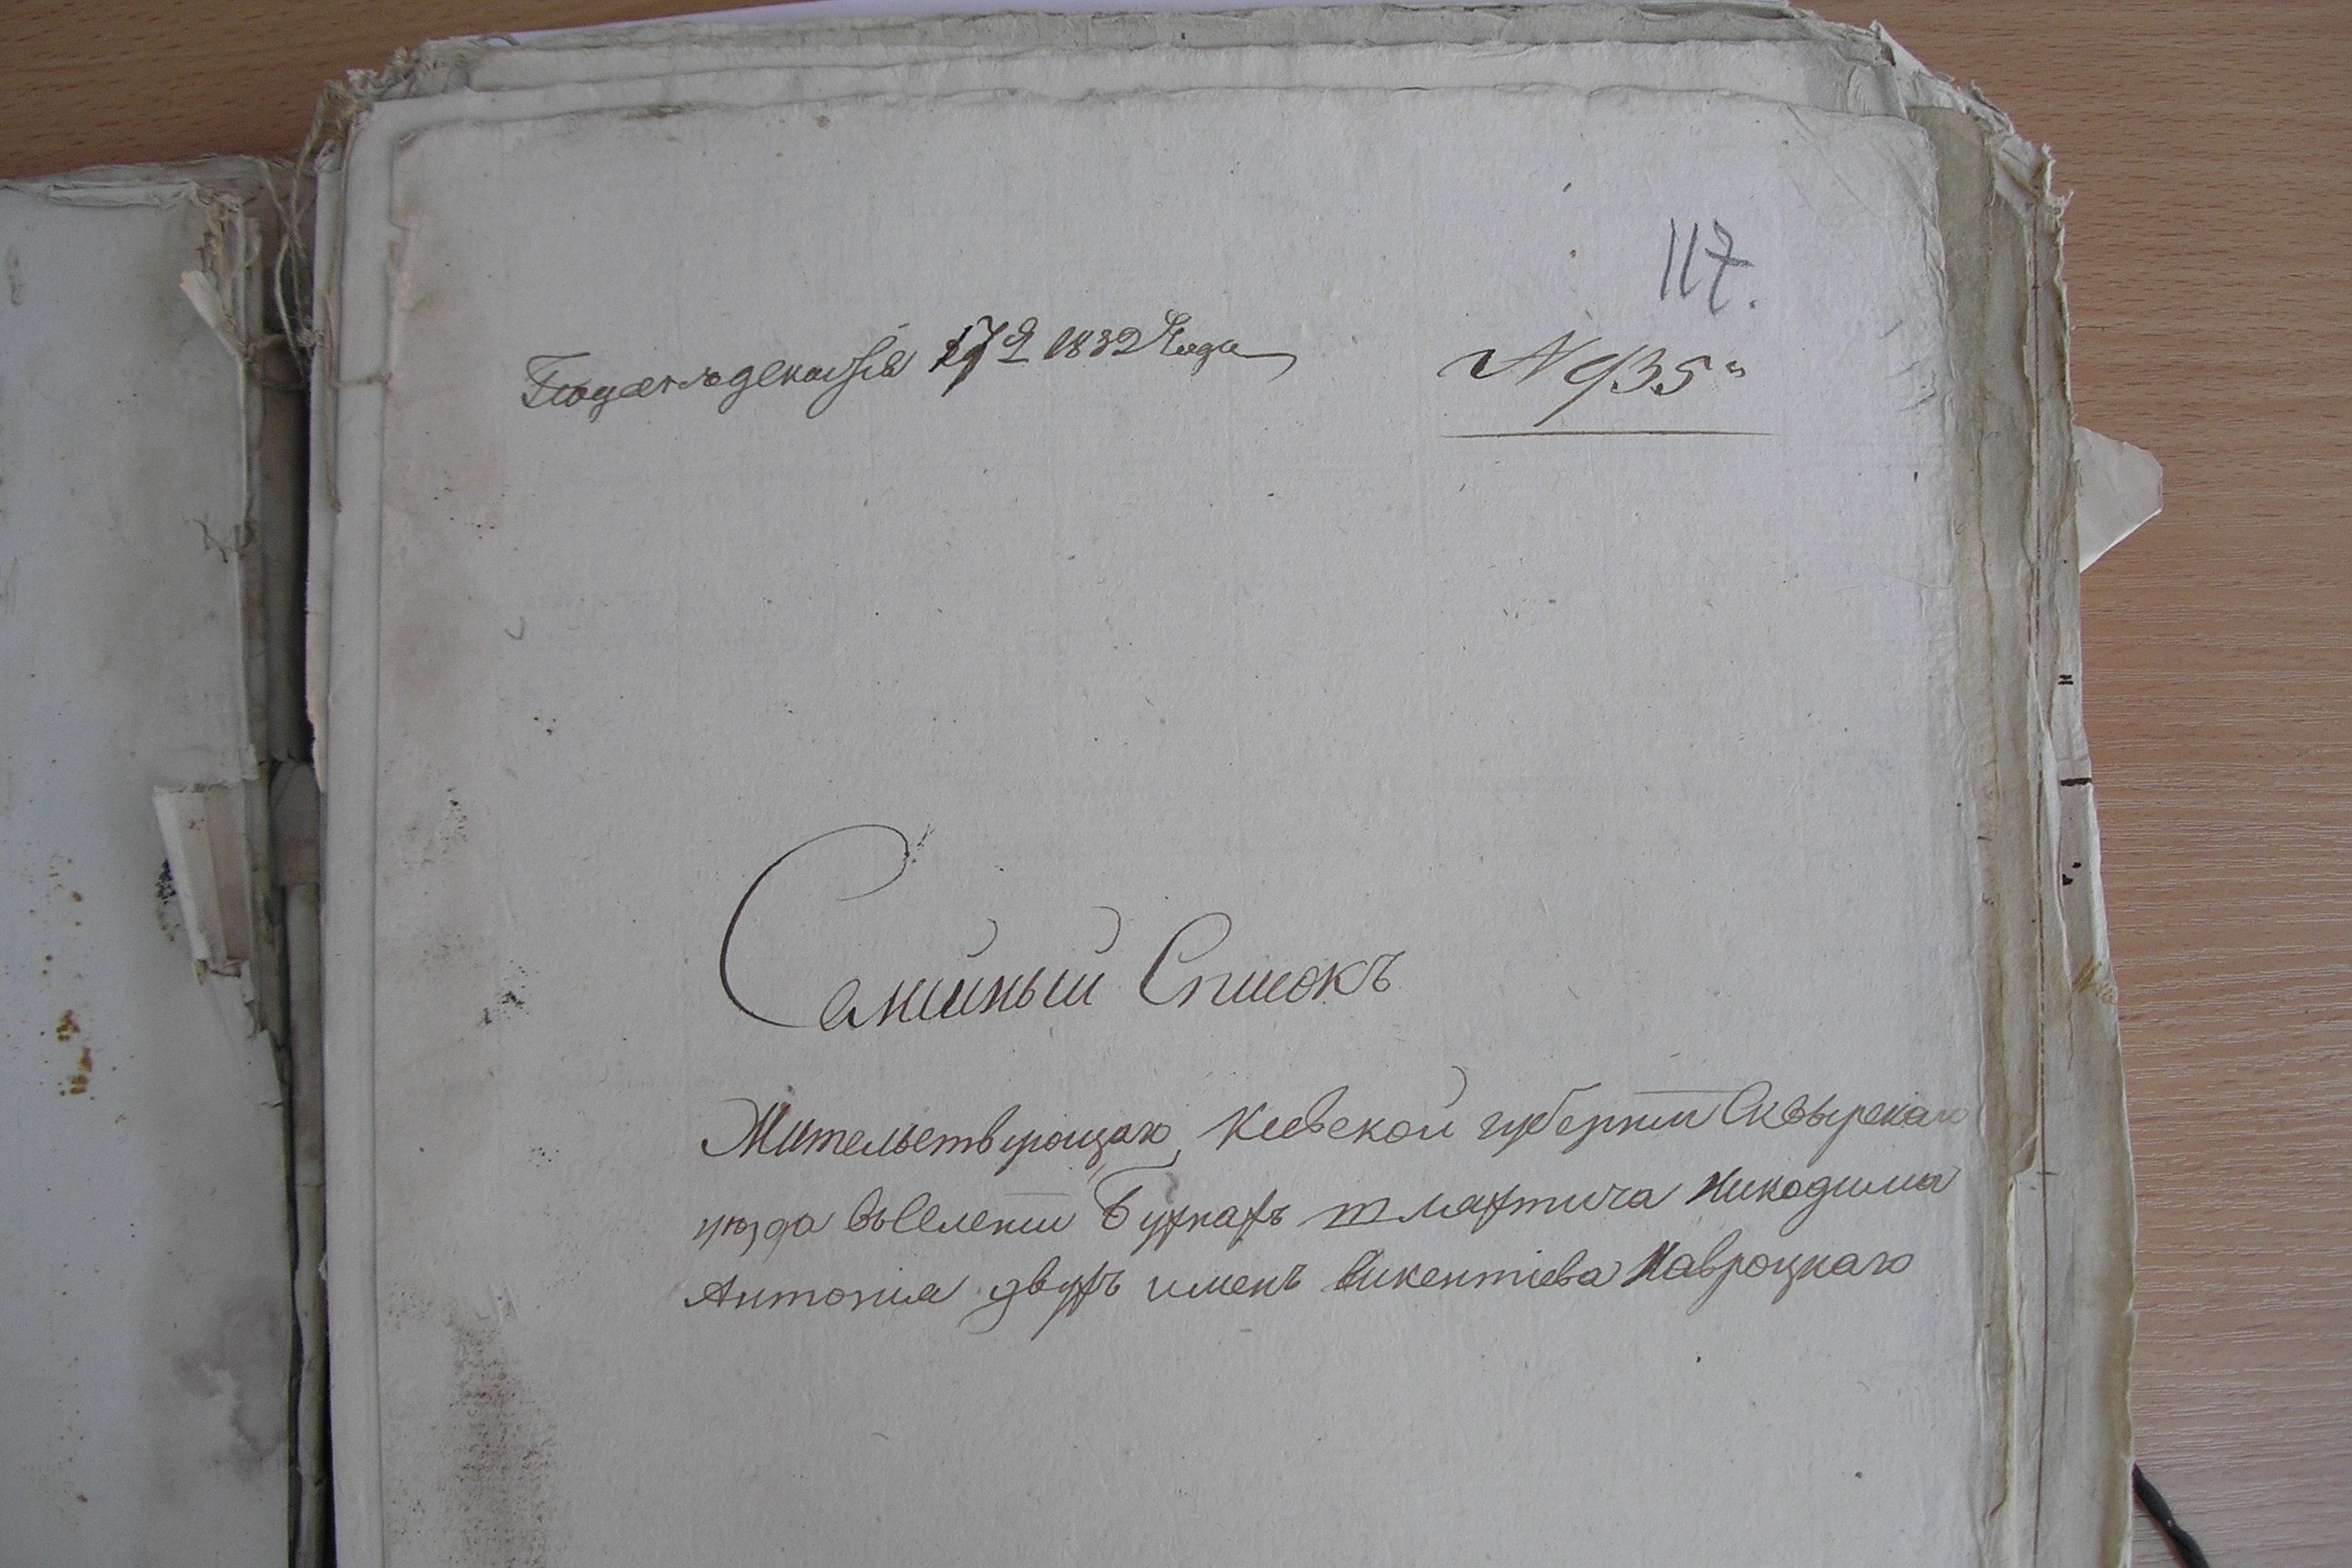 117.
Подан декабря 17го 1832 Года
N 935"
Семийный Список
Жительствующаго Киевской губернии Сквырскаго
уезда в селении Бурках шляхтича Никодима
Антония двух имен Викентиева Навроцкаго